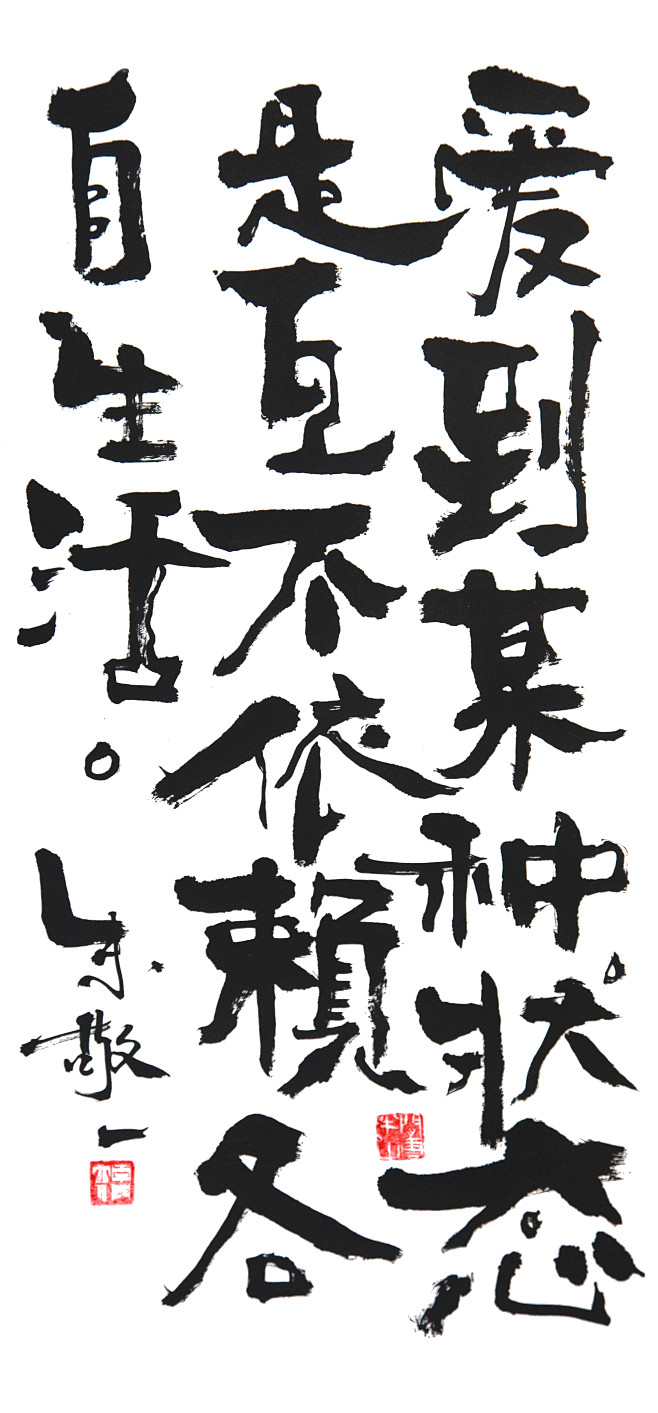 爱到某种状态
是互不依賴各
自生活。
朱敬一